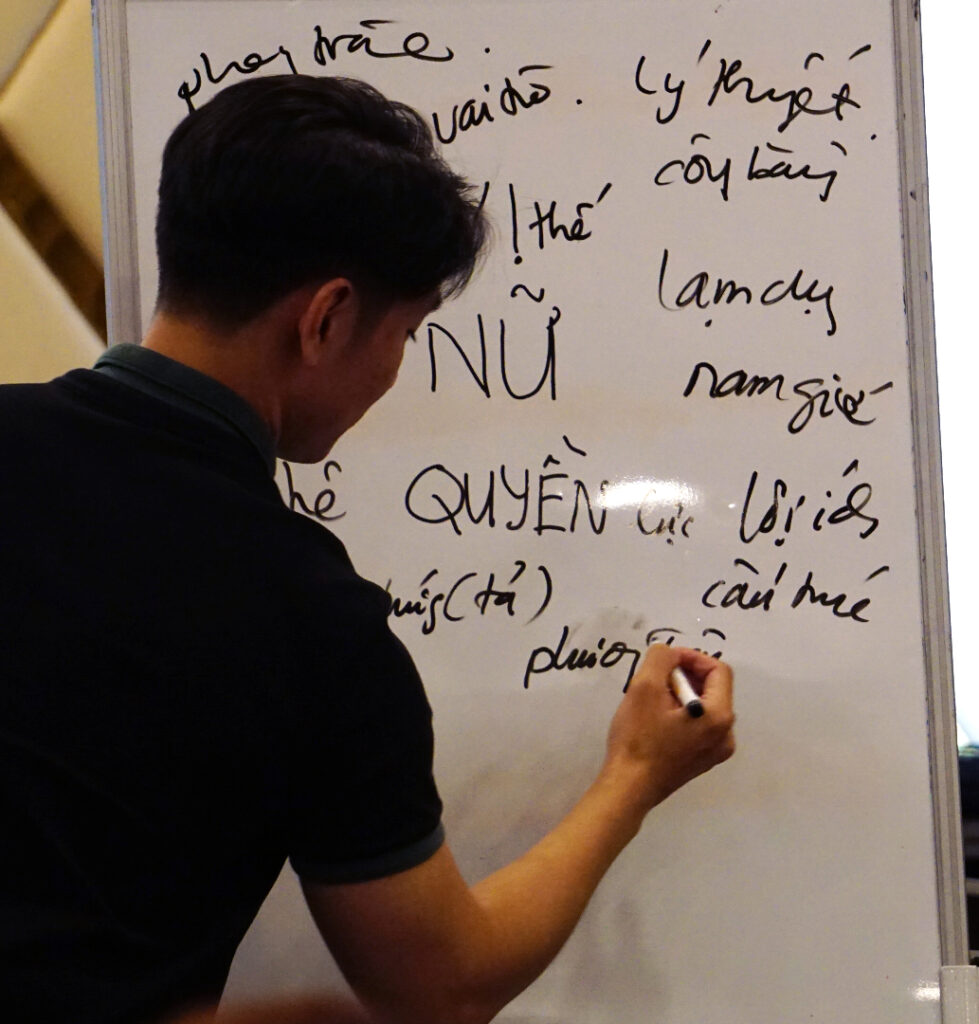 phong trào.
vai trò. lý thuyết
công bằng
vị thế
lạm dụng
NỮ
nam giới
QUYỀN lực lợi ích
(tả)
cấu trúc
phương